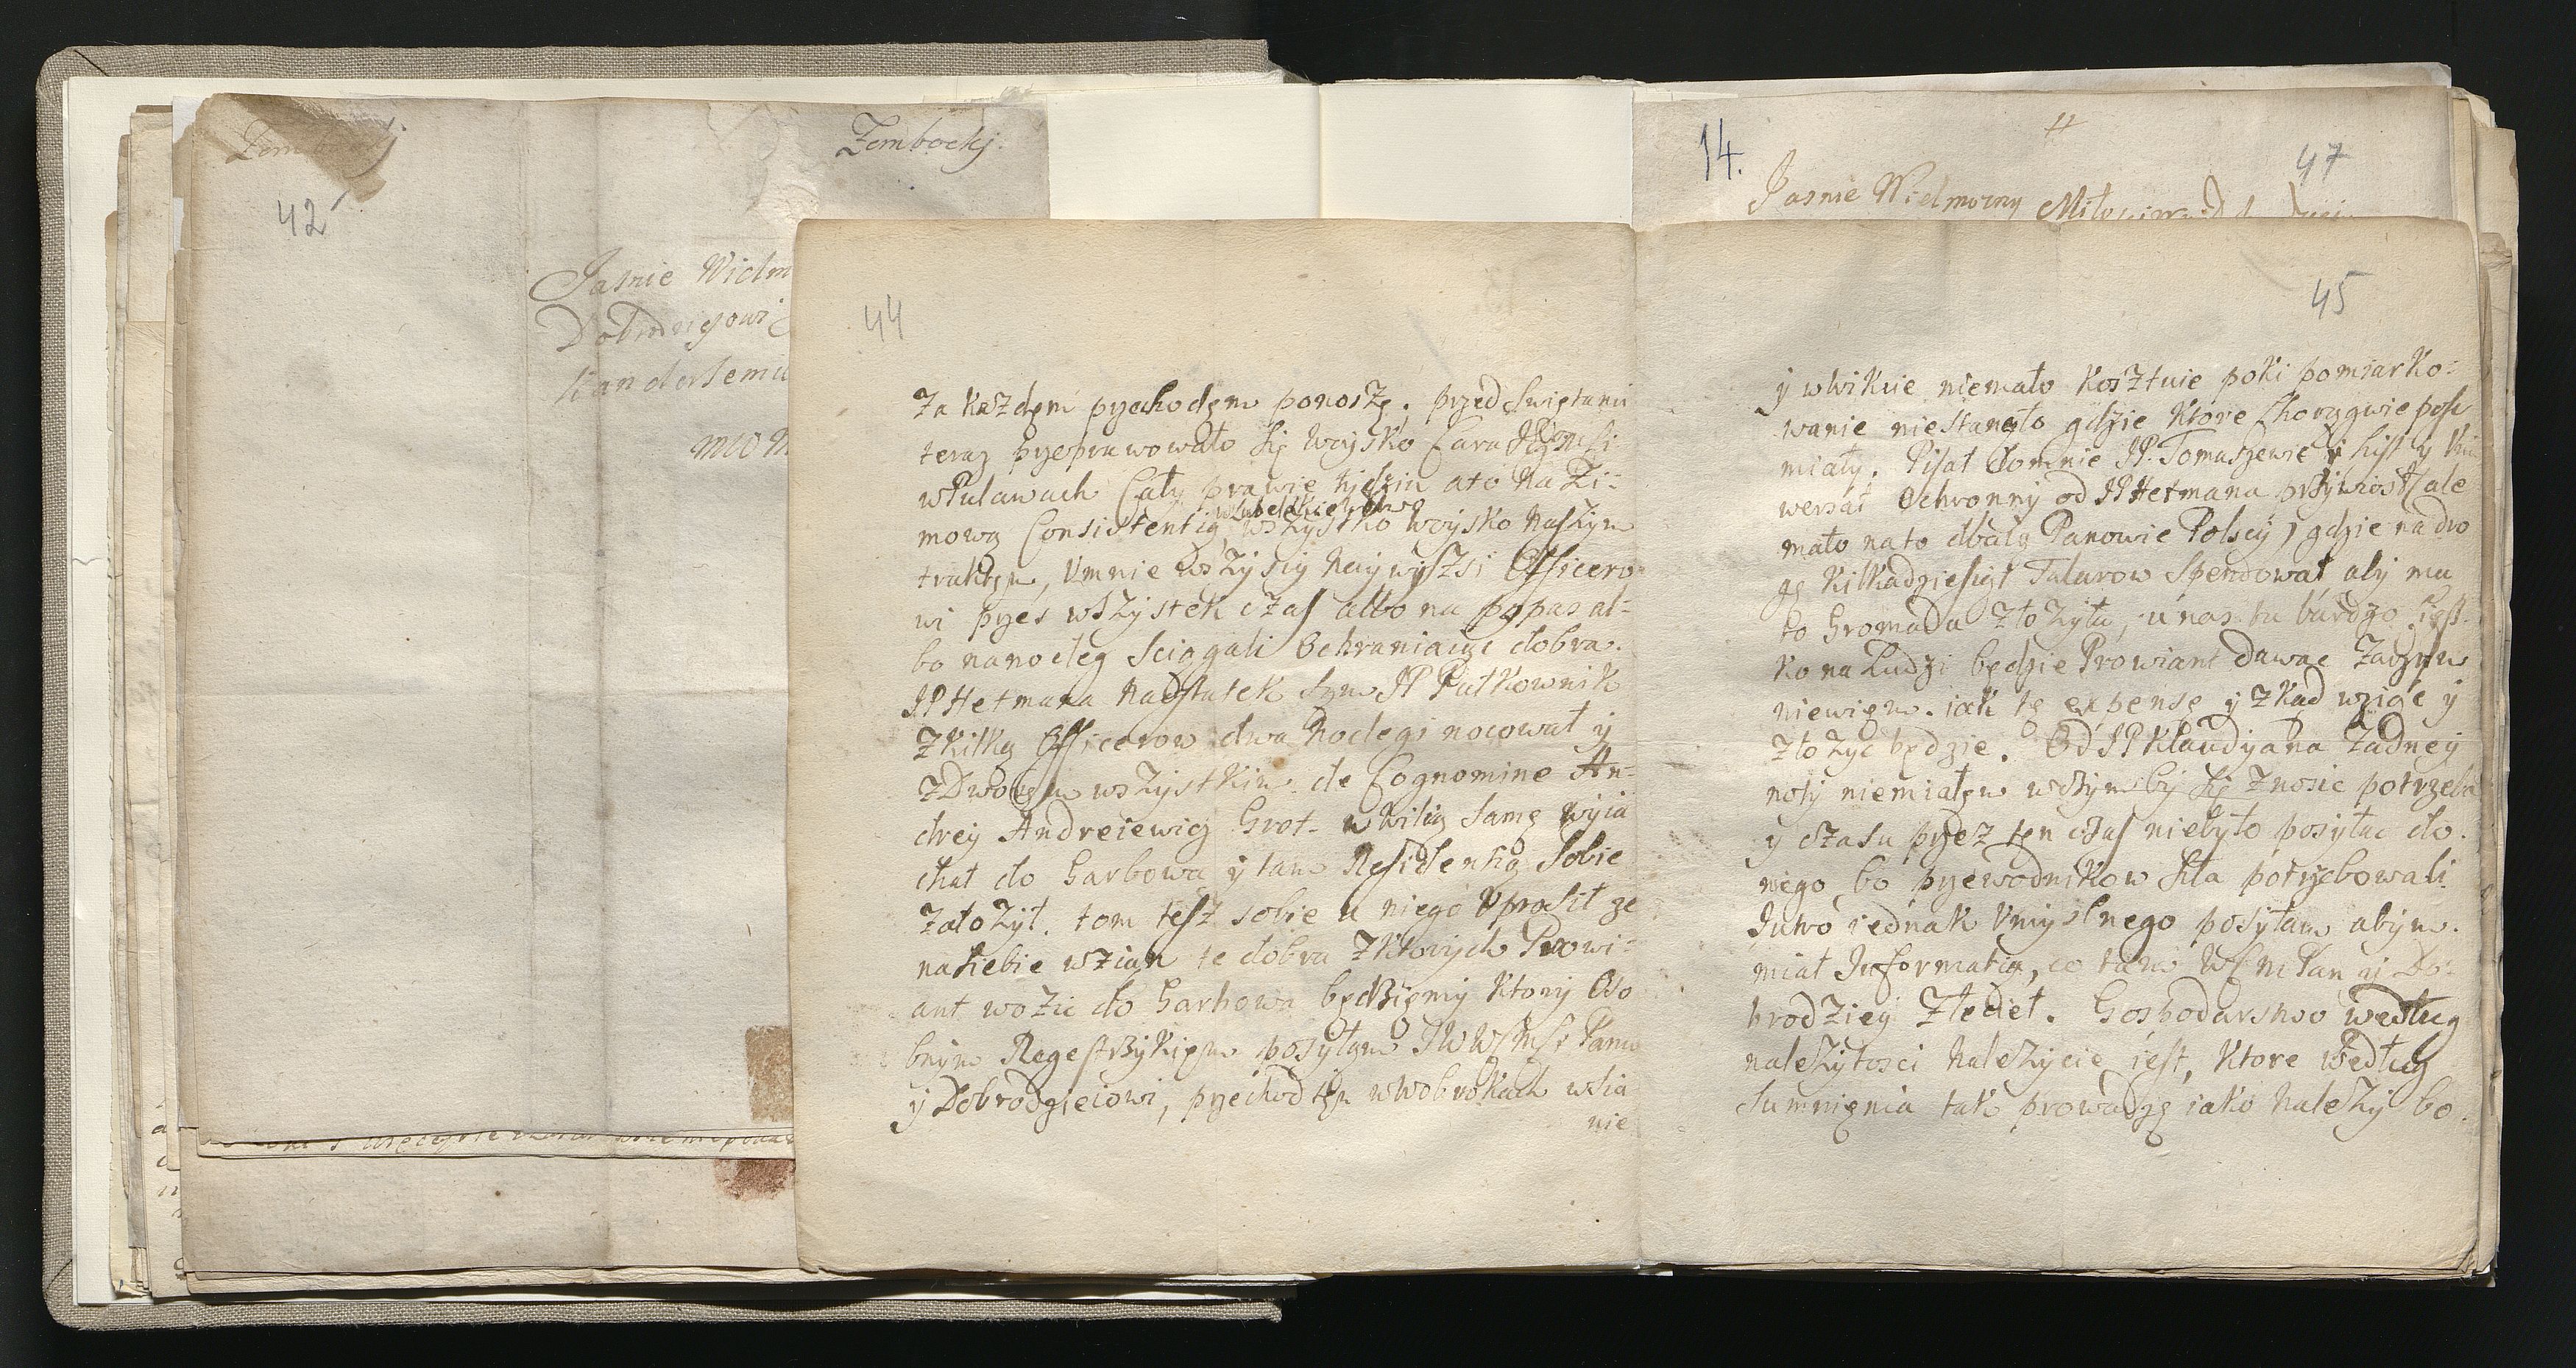 Zembockj
Zembockj.
42
Jasnie Wielm
Dobrodziejowi
mo
44
Za Kazdem pyechodem ponoszę. przed Swiętami
teraz pyeprawowało się Woysko Cara
w Pulawach Cały prawie tydzin a to na Zi-
w Lubelskie
mową Consistentią, wszystko woysko naszym
traktem, Umnie wszyscy naywyszsi Officero-
wi pyes wszystek czas albo na popas al-
bo nanocleg sciągali Ochraniaiąc dobra.
JP Hetmana Naostatek sam JP Pułkownik
Z kilką Officerow dwa Noclegi nocował y
Z Dworem wszystkim. de Cognomine An-
drey Andreiewicz Grot. w wilią samę wyia
chał do Garbowa y tam Residentią Sobie
załozył. tom tesz sobie u niego Uprosił ze
nasiebie wzian te dobra z ktorych Prowi-
ant wozic do Garbowa będziemy Ktory Oso
bnym Regestrzykiem posyłam JWWMsci Panu
y Dobrodzieiowi, pyechod ten w Wobrokach w Sia
nie
45
y wwikcie niemało Kosztuie poki pomiarko-
wanie niestaneło gdzie Ktore Choręgwie
miały. Pisał Domnie JP. Tomaszewic List y Uni
wersał Ochronny od JP Hetmana przywiosł (ale
mało na to dbaią Panowie Polscy) gdzie na dro
gę Kilkadziesiąt Talarow Spendował aby mu
to Gromada złozyła, u nas tu bardzo
ko na Ludzi będzie Prowiant dawac Zaczym
niewiem. iak tę expensę y zkąd wziąć y
złozyc będzie. Od JP Klaudyana Zadney
noty niemiałem wczym by się znosic potrzeba
y czasu pyez ten czas niebyło posyłac do.
niego, bo pyewodnikow siła potrzebowali.
Juwo iednak Umyslnego posyłam abym.
miał Informatią, co tam WM Pan y Do-
brodziey zlecieł. Gospodarswo według
nalezytosci nalezycie iest, Ktore według
sumnięnia tak prowadzę iako nalezy bo.
14.
47
Jasnie Wielmozny